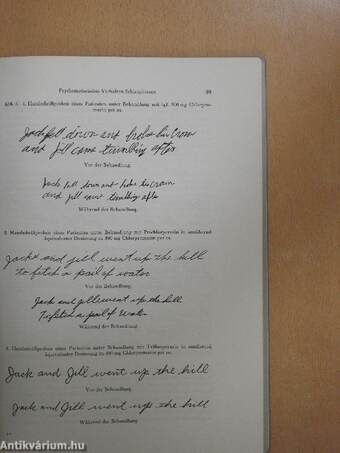 Psychomotorisches Verhalten Schizophrener
99
1. Handschriftproben eines Patienten unter Behandlung mit tgl. 800 mg Chlorpromazin per os.
Jack fell down and broke his crown
and Jill came tumbling after
Vor der Behandlung
Jack fell down and broke his crown
and Jill went tumbling after
Während der Behandlung.
2. Handschriftproben eines Patienten unter Behandlung mit Prochlorperazin in annähernd
äquivalenter Dosierung zu 800 mg Chlorpromazin per os.
Jacks and Jill went up the hill
To fetch a pail of water
Vor der Behandlung.
Jack and Jill went up the hill
To fetch a pail of water
Während der Behandlung
3. Handschriftproben eines Patienten unter Behandlung mit in annähernd
äquivalenter Dosierung zu 800 mg Chlorpromazin per os.
Jack and Jill went up the hill
Vor der Behandlung
Jack and Jill went up the hill
Während der Behandlung.
Antikvárium.hu